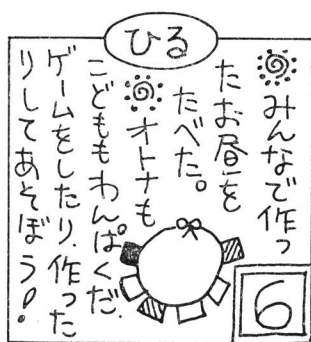 ひる
みんなで作っ
たお昼を
たべた。
オトナも
こどももわんぱくだ.
ゲームをしたり、作った
りしてあそぼう!
6